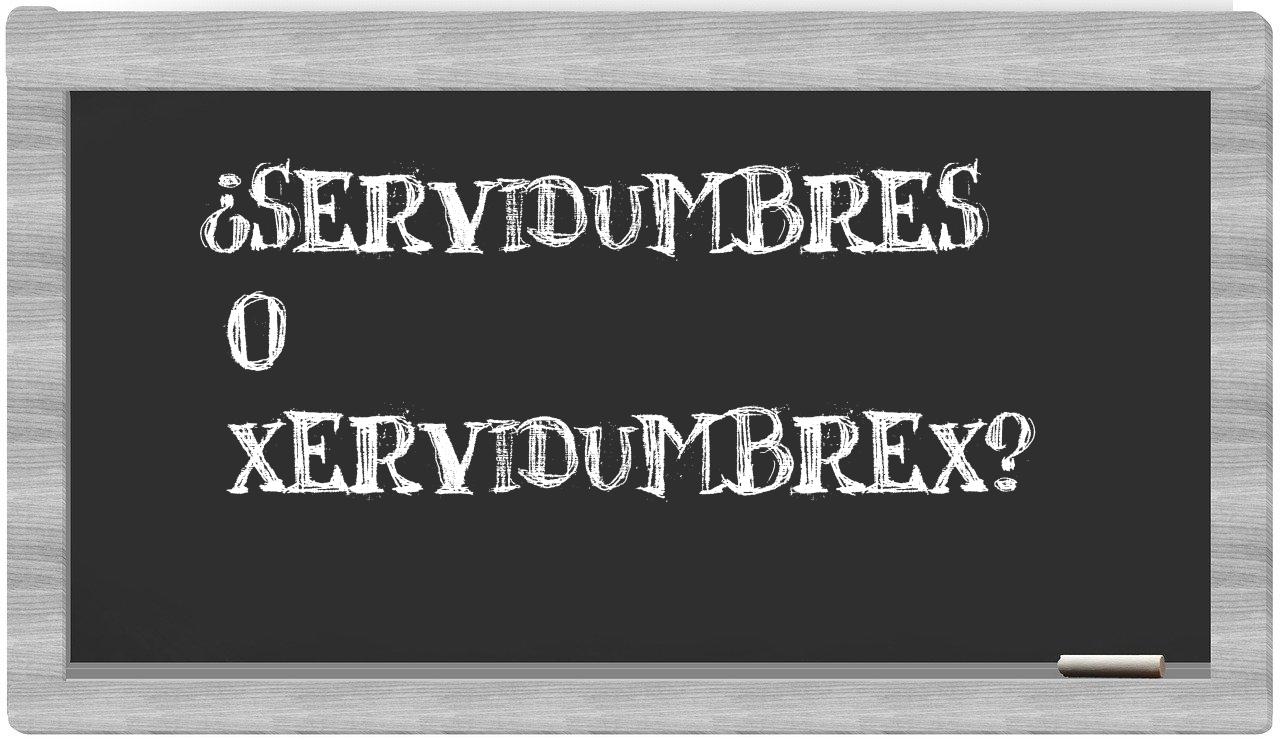 ¿SERVIDUMBRES
O
XERVIDUMBREX?